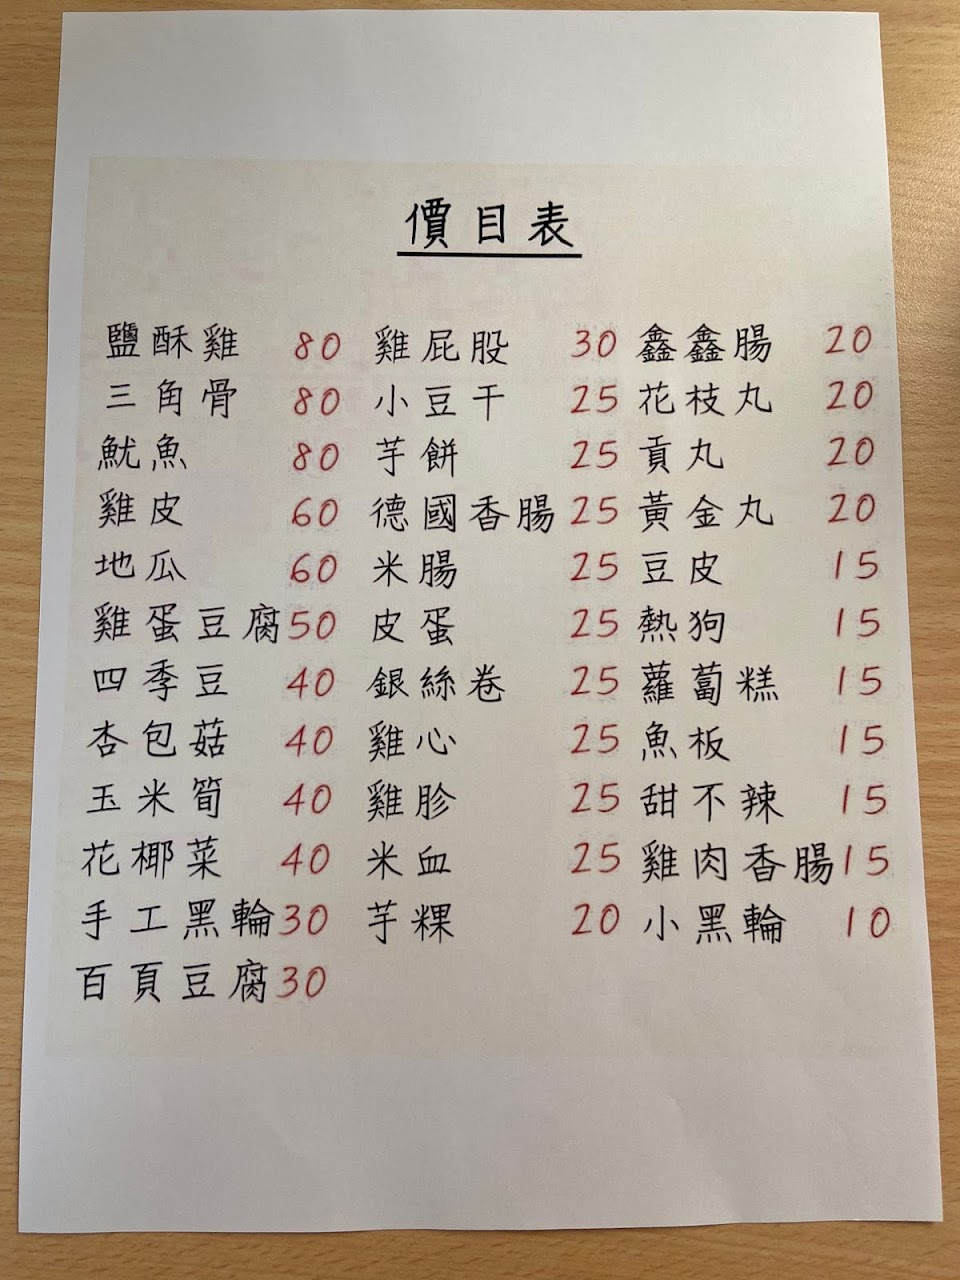 價目表
鹽酥雞 80 雞屁股 30 鑫鑫腸 20
三角骨 80 小豆干 25 花枝丸 20
魷魚 80 芋餅 25 貢丸 20
雞皮 60 德國香腸 25 黃金丸 20
地瓜 60 米腸 25 豆皮 15
雞蛋豆腐 50 皮蛋 25 熱狗 15
四季豆 40 銀絲卷 25 蘿蔔糕 15
杏包菇 40 雞心 25 魚板 15
玉米筍 40 雞胗 25 甜不辣 15
花椰菜 40 米血 25 雞肉香腸 15
手工黑輪 30 芋粿 20 小黑輪 10
百頁豆腐 30